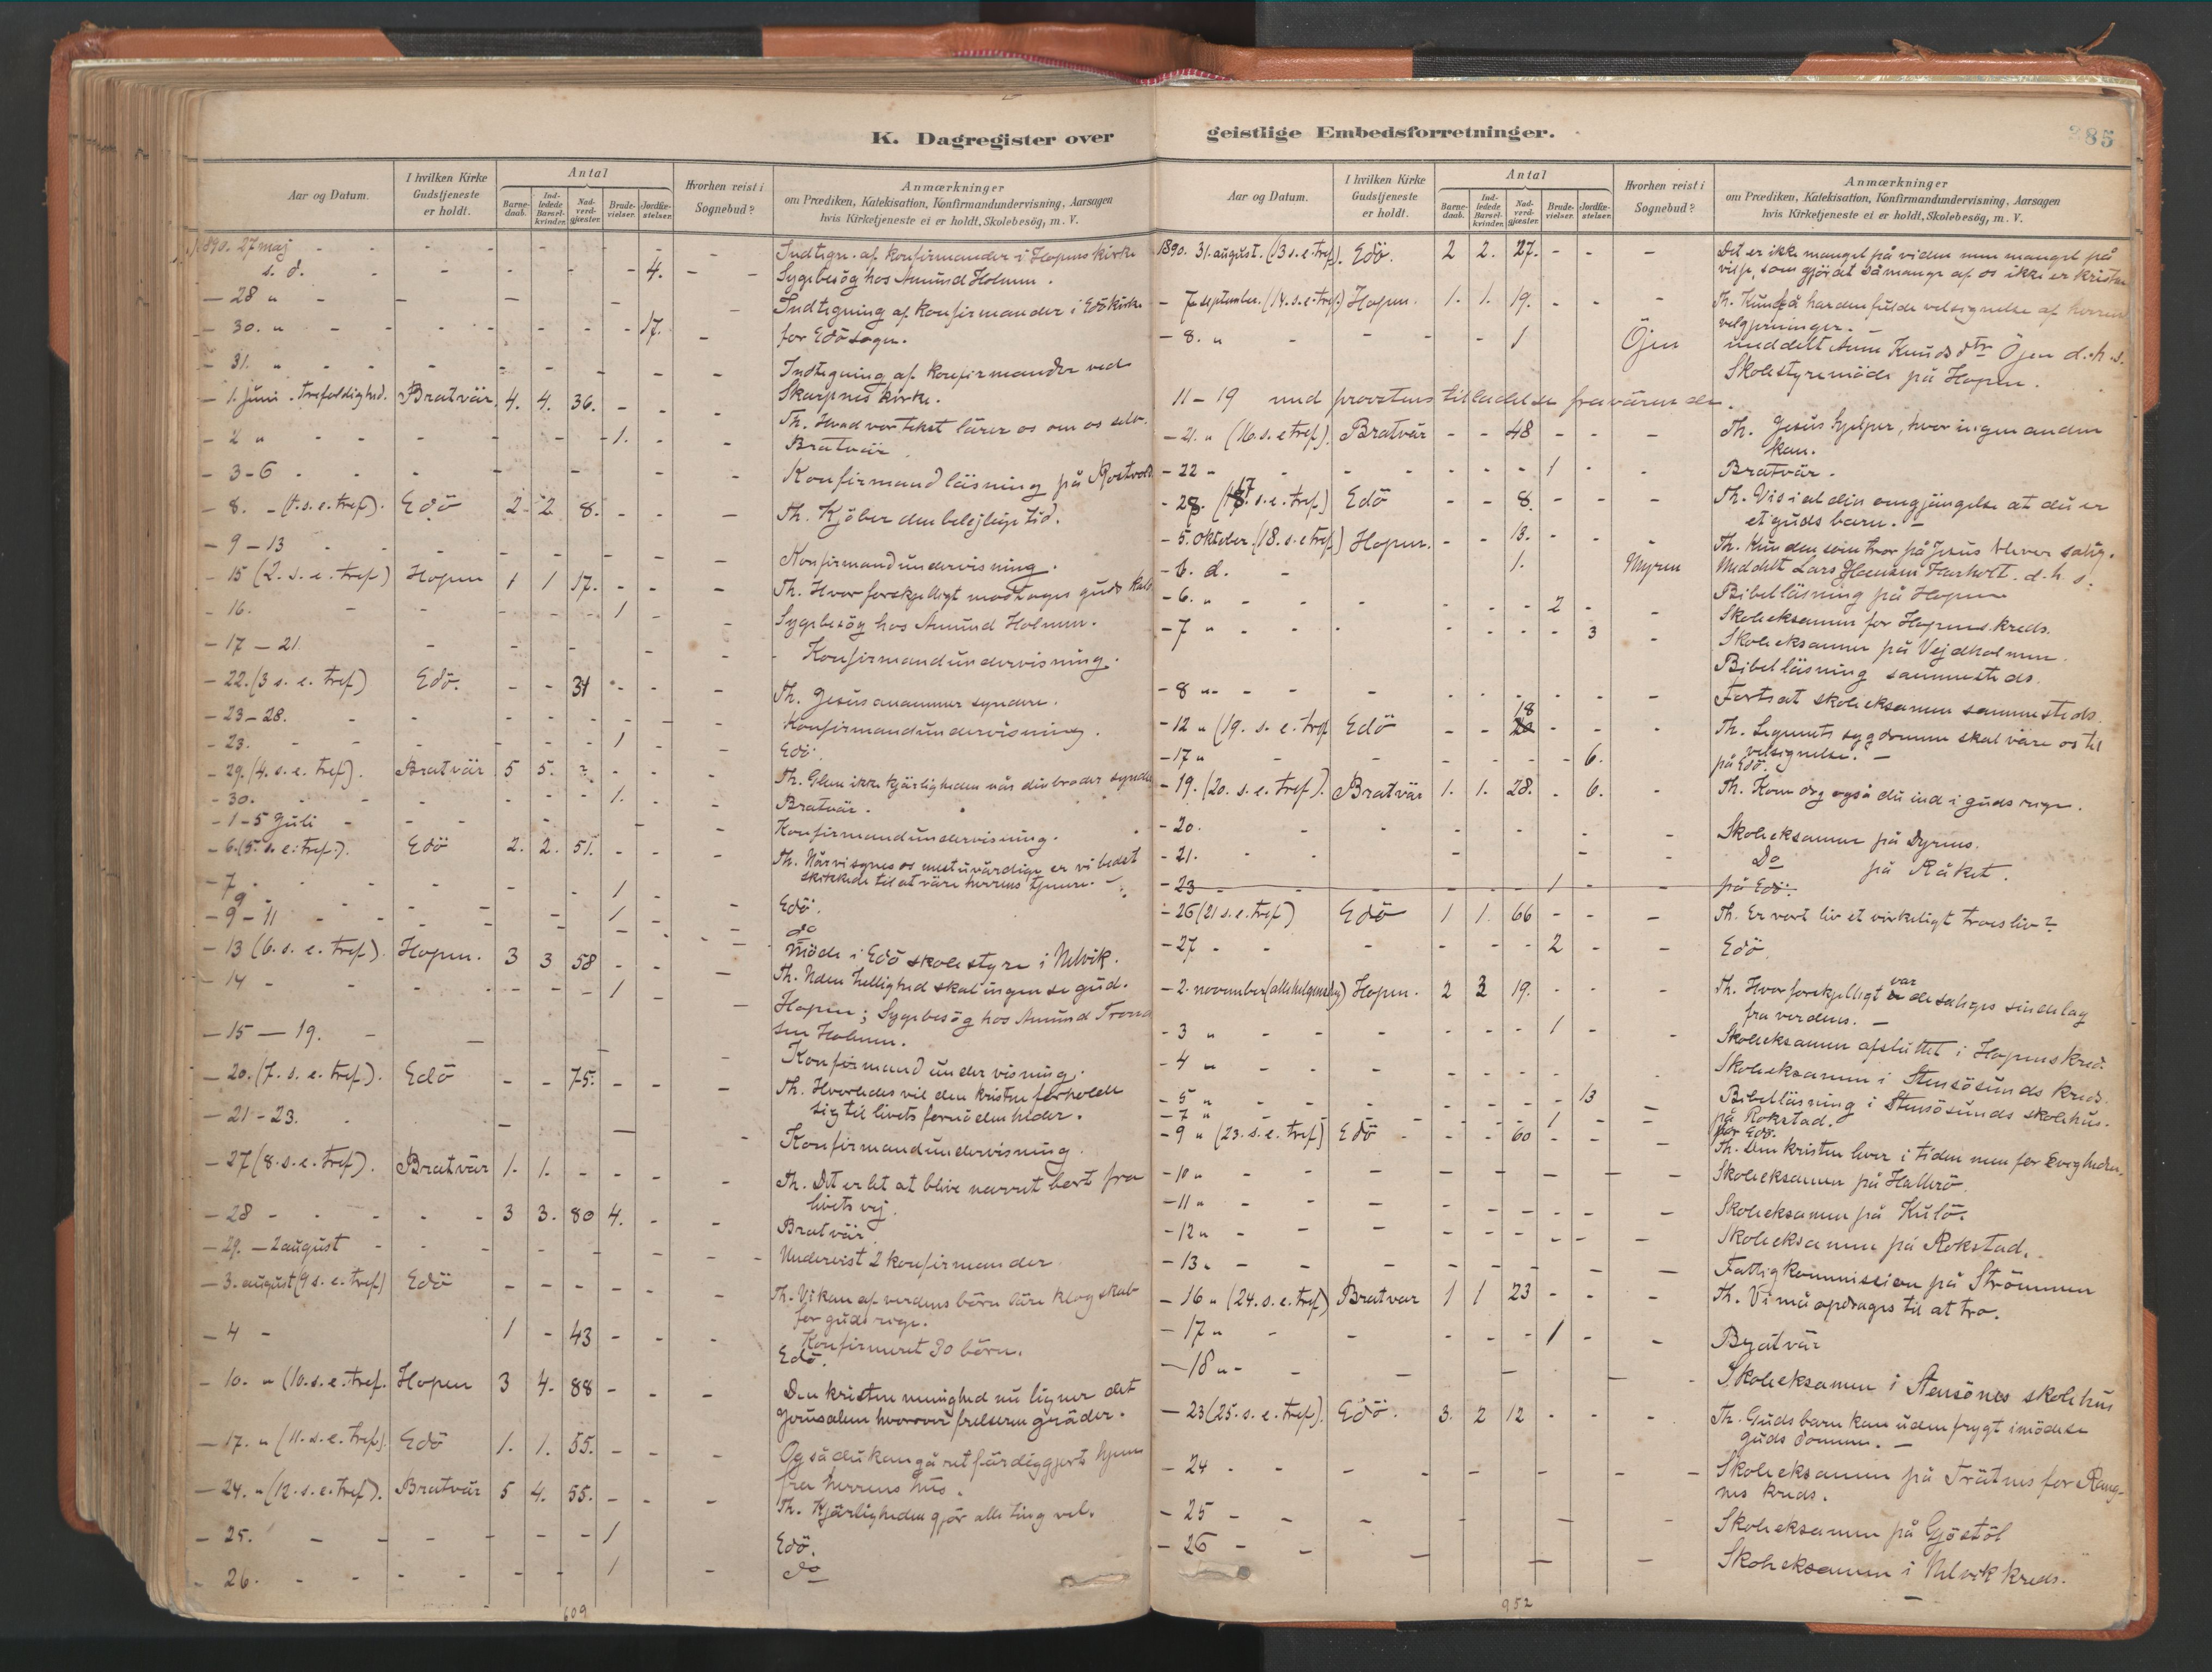 K. Dagregister over
Aar og Datum.
I hvilken Kirke Gudstjeneste er holdt.
Antal
Barne-daab.
Ind-ledede Barsel-kvinder.
Nad-verd-gjæster.
Brude-vielser.
Jordfæ-stelser.
Hvorhen reist i Sognebud?
Anmærkninger
om Prædiken, Katekisation, Konfirmandundervisning, Aarsagen
hvis Kirketjeneste ei er holdt, Skolebesög, m. V.
1890. 27 maj - - - - - - Indtegn. af konfirmander i Hopens kirke
s. d. - - - - - 4. - - Sygebesög hos Amund Holmen.
- 28 " - - - - - Indtegning af konfirmander i Edö kirke
- 30. " - - - - - 17. - for Edö sogn.
- 31. " - - - - - - Indtegning af konfirmander ved
Skarpnes kirke.
- 1. juni. Trefoldighed. Bratvär. 4. 4. 36. - - - Th. Hvad vor tekst lärer os om os selv.
- 2 " - - - - 1. - - Bratvär.
- 3-6 - - - - - - Konfirmandläsning på Rostvold
- 8. - (1. s. e. tref). Edö 2 2 8. - - - Th. Kjöber den belejlige tid.
- 9 - 13 - - - - - - Konfirmandundervisning.
- 15 (2. s. e. tref) Hopen 1 1 17. - - - Th. Hvor forskjelligt modtages guds kald
- 16. - - - - 1 - - Sygebesög hos Amund Holmen.
- 17 - 21. - - - - - - Konfirmandundervisning.
- 22. (3 s. e. tref) Edö. - - 31 - - - Th. Jesus anammer syndere.
- 23-28. - - - - - - Konfirmandundervisning.
- 23. - - - - 1 - - Edö.
- 29. (4. s. e. tref). Bratvär 5 5. ? - - - Th. Glem ikke kjärligheden når din broder synder
- 30. - - - - 1. - - Bratvär.
- 1-5 Juli - - - - - - Konfirmandundervisning.
- 6. (5. s. e. tref.). Edö 2. 2. 51. - - - Th. Når vi synes os mest uvärdige er vi bedst
skikkede til at väre herrens tjenere. -
- 7 - - - - 1 - - Edö.
9 - - - - 1 - - do
- 9 - 11 - - - - - - möde i Edö skolestyre i Nelvik.
- 13 (6. s. e. tref). Hopen. 3 3 58 - - - Th. Uden hellighed skal ingen se gud.
- 14 - - - - 1 - - Hopen; Sygebesög hos Amund Trond
sen Holmen.
- 15 - 19. - - - - Konfirmandundervisning.
- 20. (7. s. e. tref.). Edö - - 75. - - - Th. Hvorledes vil den kristne forholde
sig til livets fornödenheder.
- 21-23. - - - - Konfirmandundervisning.
- 27 (8. s. e. tref). Bratvär 1. 1. - - - - Th. Det er let at blive narret bort fra
livets vej.
- 28 - - - 3 3. 80 4. - - Bratvär.
- 29. - 2 august - - - - - - Undervist 2 konfirmander
- 3. august (9 s. e. tref) Edö - - - - - - Th. Vi kan af verdens börn läre klogskab
for guds rige.
Konfirmeret 30 börn.
- 4 - 1 - 43 - - - Edö.
- 10. " (10. s. e. tref. Hopen 3 4. 88 - - - Den kristne menighed nu ligner det
Jerusalem hvorover frelseren gräder.
- 17. " (11. s. e. tref). Edö 1. 1. 55. - - - Også du kan gå retfärdiggjort hjem
fra herrens hus.
- 24. " (12. s. e. tref). Bratvär 5 4. 55. - - - Th. Kjärligheden gjör alle ting vel.
- 25. - - - - 1 Edö.
- 26. - - - - 1 - do
609
geistlige Embedsforretninger.
285
Aar og Datum.
I hvilken Kirke Gudstjeneste er holdt.
Antal
Barne-daab.
Ind-ledede Barsel-kvinder.
Nad-verd-gjæster.
Brude-vielser.
Jordfæ-stelser.
Hvorhen reist i Sognebud?
Anmærkninger
om Prædiken, Katekisation, Konfirmandundervisning, Aarsagen
hvis Kirketjeneste ei er holdt, Skolebesög, m. V.
1890. 31. august. (13 s. e. tref). Edö. 2 2. 27. - - - Det er ikke mangel på viden men mangel på
vilje, som gjör det så mange af os ikke er kristne
- 7 september. (14. s. e. tref.) Hopen. 1. 1. 19. - - - Th. Kun få har den fulde velsignelse af herrens
velgjerninger. -
- 8. " - - - 1 Öjen meddelt Knudsdtr Öjen d. h. s.
Skolestyremöde på Hopen.
11 - 19 med provstens tilladelse fraværende.
- 21. " (16. s. e. tref). Bratvär - - 48 - - - Th. Jesus hjelper, hvor ingen anden
kan.
- 22 - - - - - 1 - - Bratvär.
- 28. (17. s. e. tref.) Edö - - 8. - - - Th. Vis i al din omgjängelse at du er
et guds barn. -
- 5. oktober. (18. s. e. tref) Hopen. - - 13. - - - Th. Kun den som tror på Jesus bliver salig.
- 6. d. - 1. Myren Meddelt Lars Hansen d. h. s.
Bibelläsning på Hopen
- 6. " - - - - - 2 - - Skoleeksamen for Hopens kreds.
- 7 " - - - - - - 3 - Skoleeksamen på Vejdholmen.
Bibelläsning sammesteds.
- 8 " - - - - - - - Fortsat skoleeksamen sammesteds.
- 12 " (19. s. e. tref Edö - - 18 - - - Th. Legemets sygdomme skal väre os til
velsignelse. -
- 17 " - - - - - 6. på Edö.
- 19. (20. s. e. tref). Bratvär 1. 1. 28. - 6. - Th. Kom dog også du ind i guds rige.
- 20. - - - - - Skoleeksamen på Dyrnes.
- 21. - - - - - Do på Råket.
- 23 - - - - 1 - - på Edö.
- 26 (21 s. e. tref) Edö 1 1. 66 - - - Th. Er vort liv et virkeligt troesliv?
- 27 - - - - - 2 - - Edö.
- 2. november (allehelgensdag) Hopen. 2 3 19. - - - Th. Hvor forskjelligt var de saliges sindelag
fra verdens. -
- 3 " - - - - - 1 - - Skoleeksamen afsluttet i Hopens kred.
- 4 " - - - - - - - Skoleeksamen i Stensösunds kreds.
- 5 " - - - - - - 13 - Bibelläsning i Stensösunds skolehus.
på Rokstad.
- 7 " - - - 1 - - på Edö.
- 9 " (23. s. e. tref) Edö - - 60 - - - Th. Den kristne lever i tiden men for Evigheden.
- 10 " - - - - - - - Skoleeksamen på Hallerö.
- 11 " - - - - - - - Skoleeksamen på Kulö.
- 12 " - - - - - - - Skoleeksamen på Rokstad.
- 13. - - - - - - - Fattigkommission på Strömmen
- 16 " (24. s. e. tref) Bratvar 1 1 23 - - - Th. Vi må opdrages til at tro.
- 17 " - - - - - 1 - - Bratvär
- 18 " - - - - - Skoleeksamen i Stensönes skolehus
- 23 (25. s. e. tref). Edö. 3. 2 12 - - - Th. Guds barn kan uden frygt imödese
guds domme. -
- 24 - - - - - - - Skoleeksamen på Trätnes for Rang-
nes kreds.
- 25 - - - - - - Skoleeksamen på Gjöstöl
- 26 - - - - - Skoleeksamen i Nelvik kreds.
952